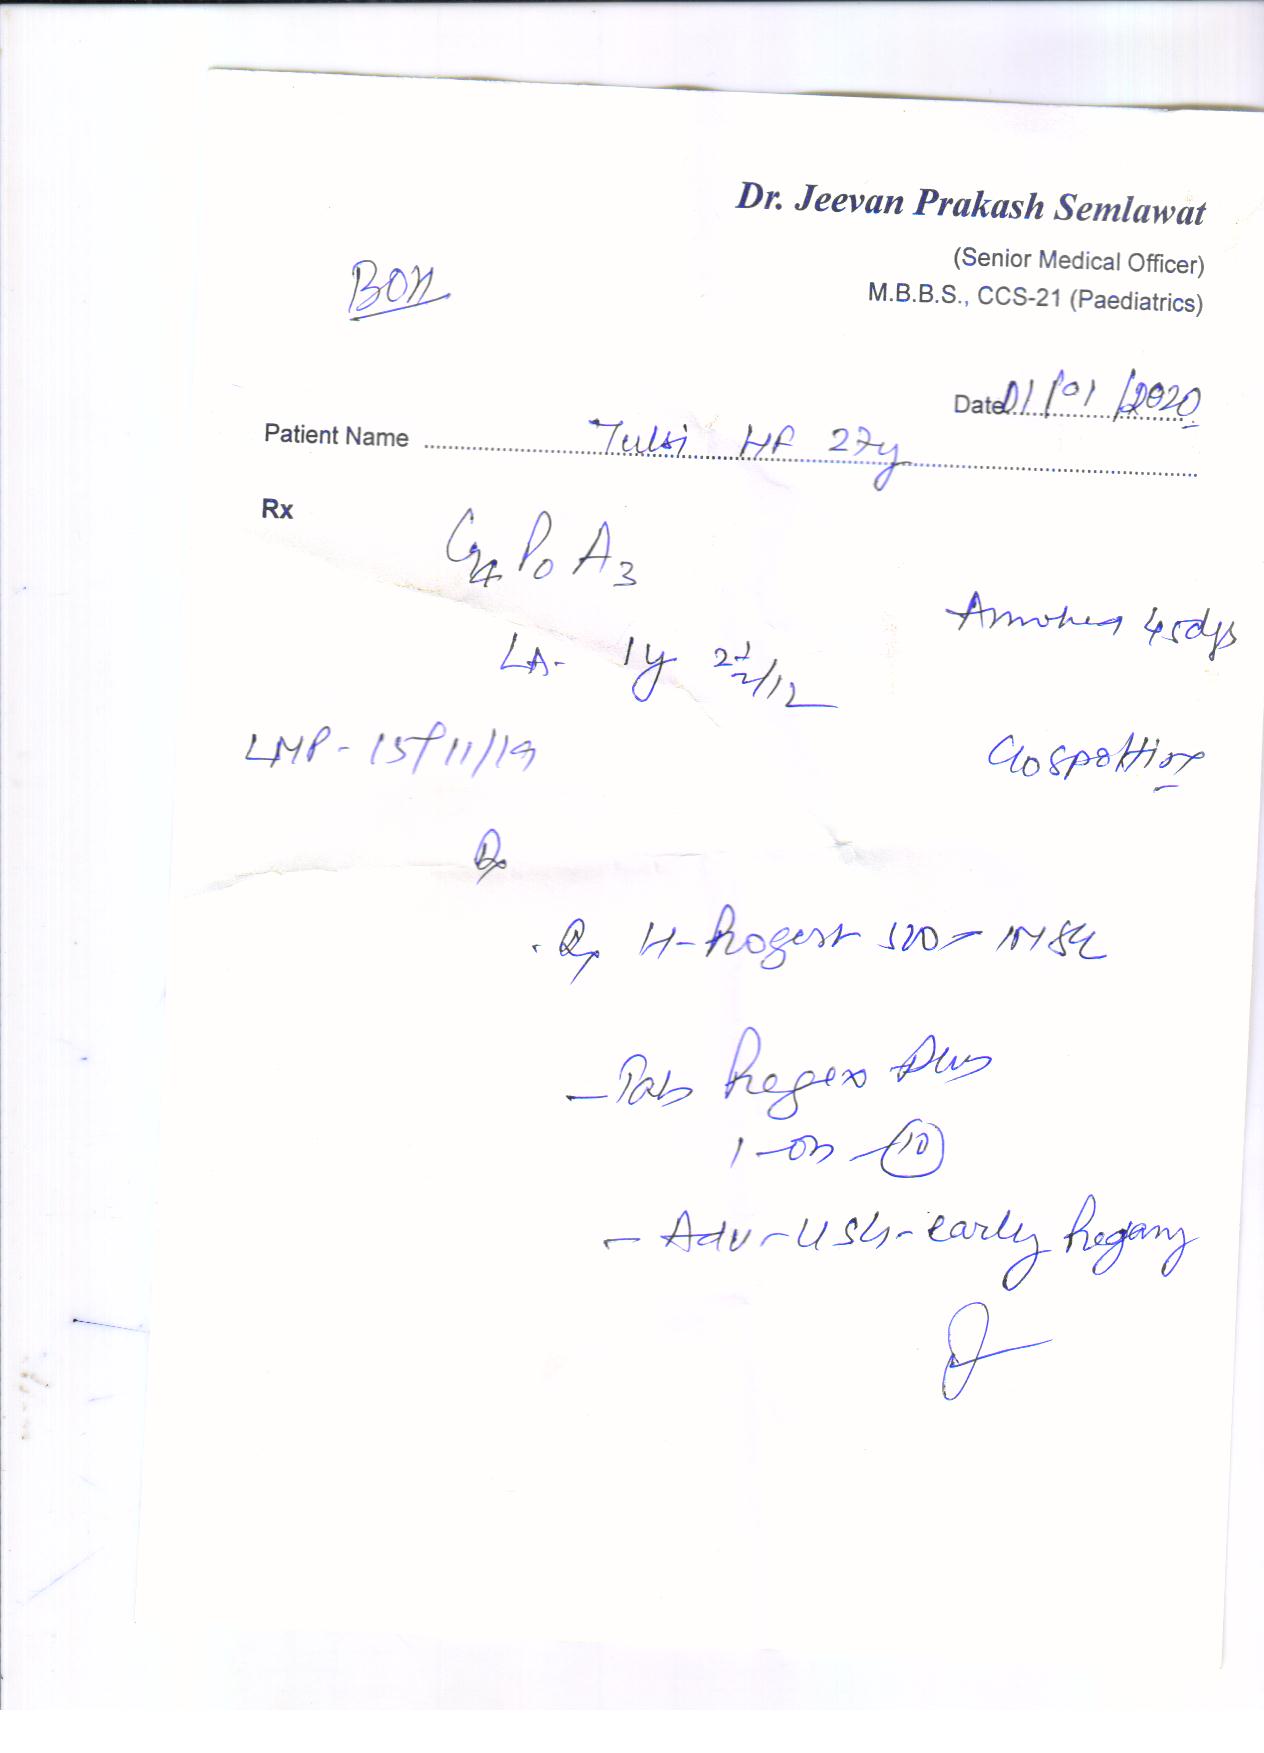 Dr. Jeevan Prakash Semlawat
(Senior Medical Officer)
M.B.B.S., CCS-21 (Paediatrics)
Date 01/01/2020
Patient Name Tulsi HF 27y
Rx
G4 P0 A3
45dys
LA- 1y
LMP- 15/11/19
C/o spotting
Rx
H-Progest
- Tab Plus
1-OD - 10
- Adv - USG - early Pregany